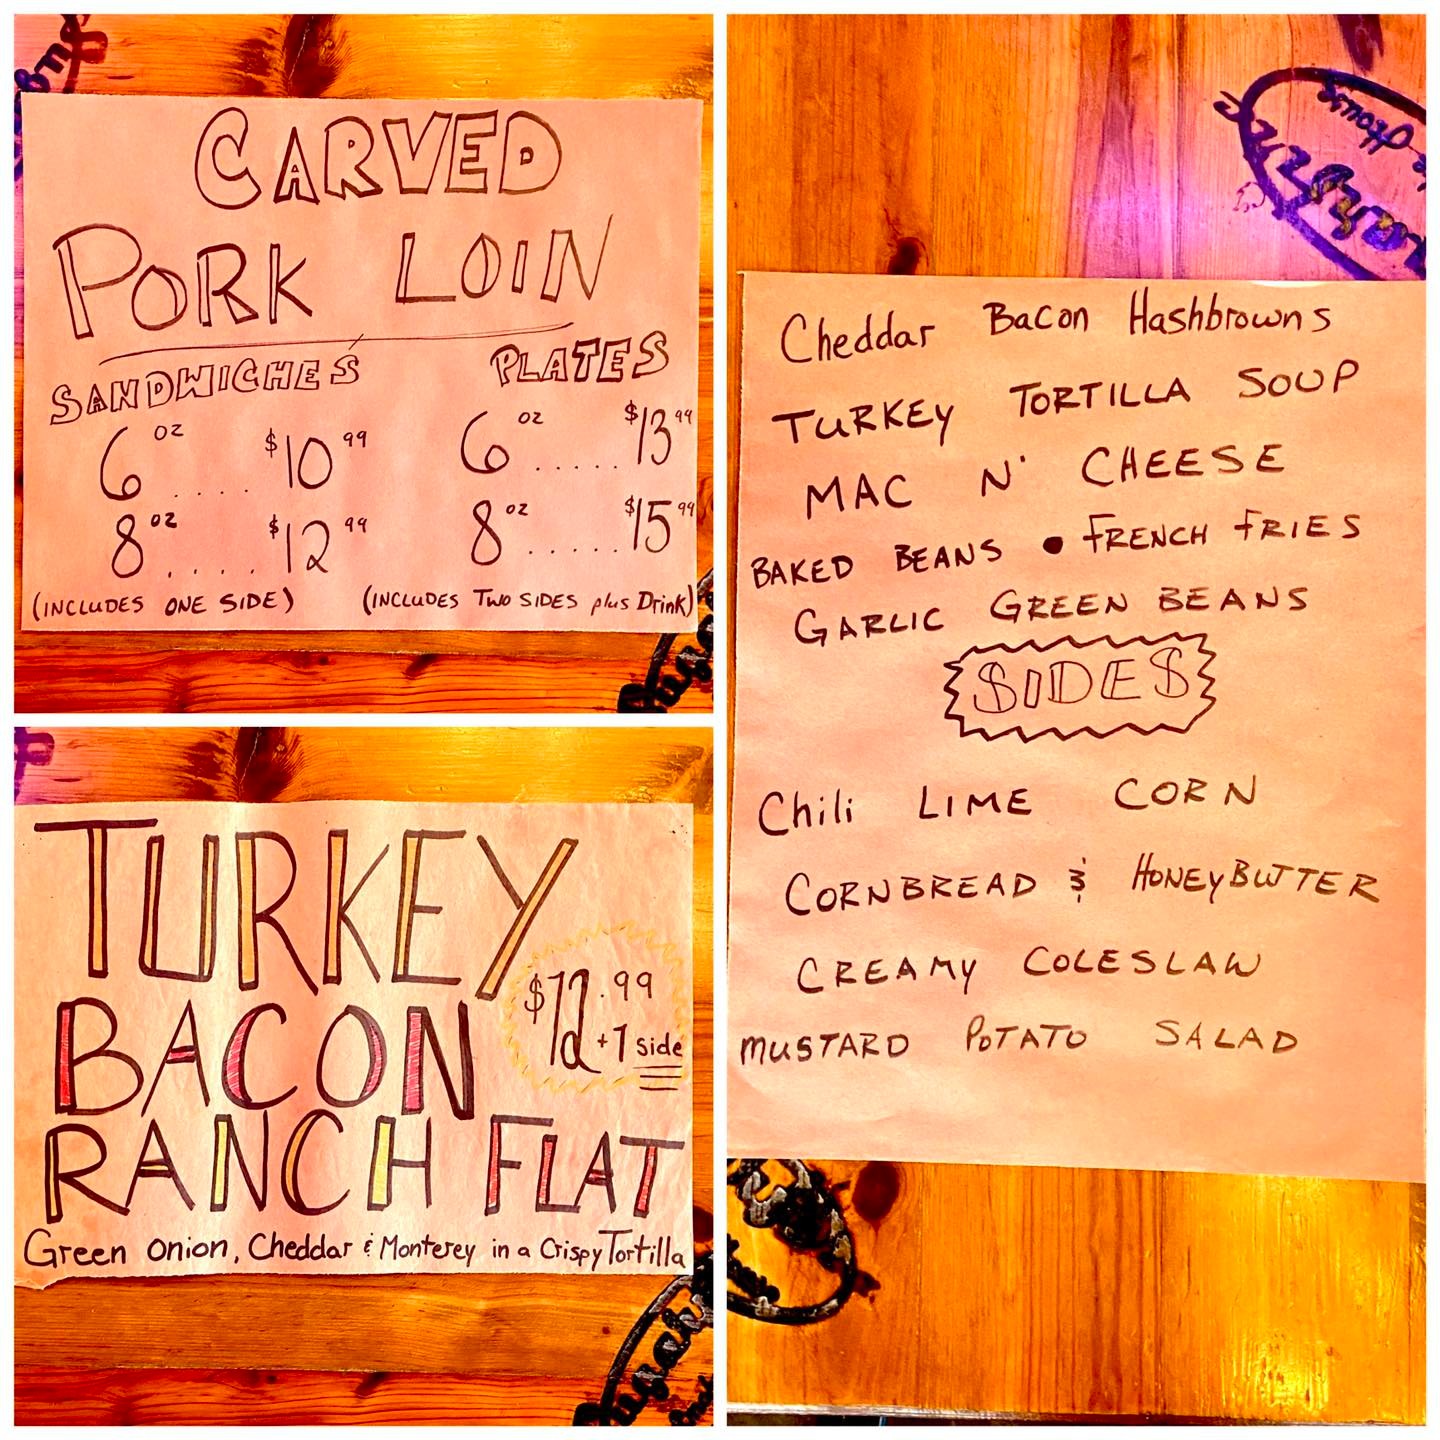 CARVED
PORK LOIN
SANDWICHES
6 oz $10.99
8 oz .... $12.99
(INCLUDES ONE SIDE)
PLATES
6 oz ..... $13.99
8 oz ...... $15.99
(INCLUDES TWO SIDES plus Drink)
TURKEY
BACON
RANCH FLAT
$12.99
+1 side
Green Onion, Cheddar & Monterey in a Crispy Tortilla
Cheddar Bacon Hashbrowns
TURKEY TORTILLA SOUP
MAC N' CHEESE
BAKED BEANS • FRENCH FRIES
GARLIC GREEN BEANS
$IDE$
Chili LIME CORN
CORNBREAD & HONEYBUTTER
CREAMY COLESLAW
MUSTARD POTATO SALAD